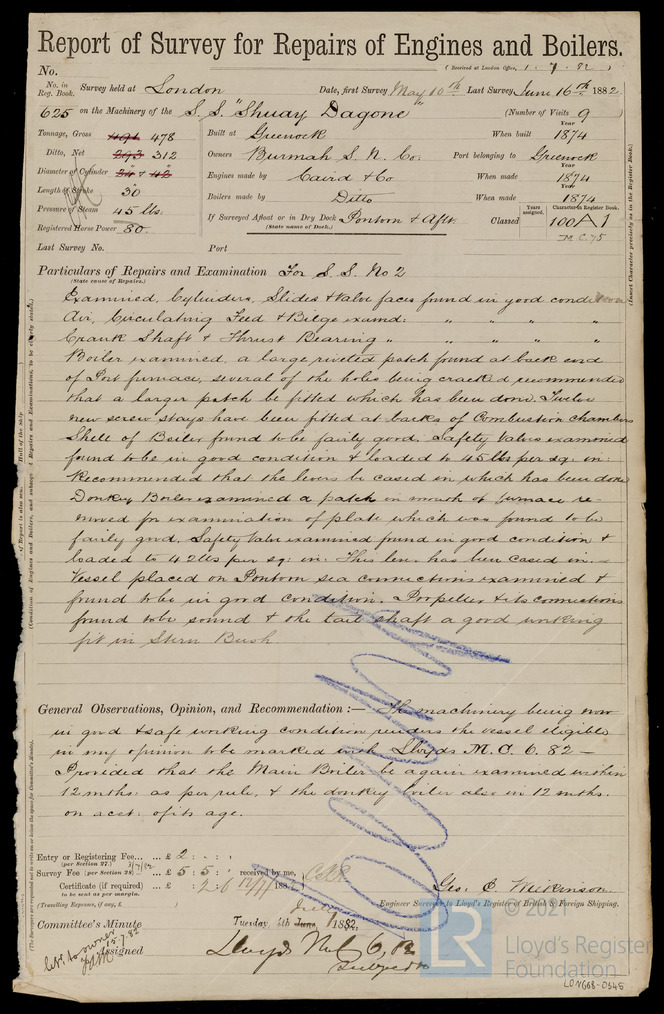 Report of Survey for Repairs of Engines and Boilers.
(Received at London Office, 1. 7. 82 )
No.
No. in Reg. Book. Survey held at London Date, first Survey May 10th Last Survey June 16th 1882
625 on the Machinery of the S. S. "Shuay Dagone" (Number of Visits 9
Tonnage, Gross 491 478 Built at Greenock When built Year 1874
Ditto, Net 293 312 Owners Burmah S. N. Co. Port belonging to Greenock
Diameter of Cylinder 24 & 42 Engines made by Caird & Co When made Year 1874
Length of Stroke 30 Boilers made by Ditto When made Year 1874
Pressure of Steam 45 lbs. If Surveyed Afloat or in Dry Dock Pontoon & Aflt. Classed Years assigned. Character in Register Book. 100A1
(State name of Dock.)
Registered Horse Power 80. M.C. 75
Last Survey No. Port
Particulars of Repairs and Examination For S. S. No 2
(State cause of Repairs.)
Examined, Cylinders, Slides & Valve faces found in good condition
Air, Circulating Feed & Bilge examd: " " " "
Crank Shaft & Thrust Bearing " " " " "
Boiler examined, a large riveted patch found at back end
of Port furnace, several of the holes being cracked recommended
that a larger patch be fitted which has been done. Twelve
new screw stays have been fitted at backs of Combustion chambers
Shell of Boiler found to be fairly good. Safety Valves examined
found to be in good condition & loaded to 45 lbs per sq: in:
Recommended that the levers be cased in which has been done
Donkey Boiler examined a patch on mouth of furnace re-
moved for examination of plate which was found to be
fairly good. Safety Valve examined found in good condition &
loaded to 42 lbs per sq: in: This lever has been cased in.
Vessel placed on Pontoon sea connections examined &
found to be in good condition. Propeller & its connections
found to be sound & the tail shaft a good working
fit in Stern Bush
General Observations, Opinion, and Recommendation :— The machinery being now
in good & safe working condition renders the vessel eligible
in my opinion to be marked with Lloyds M. C. 6. 82 —
Provided that the Main Boiler be again examined within
12 mths: as per rule, & the donkey boiler also in 12 mths.
on acct: of its age.
Entry or Registering Fee... ... £ 2 : :
(per Section 27.) 3/7/82
Survey Fee (per Section 28) ... £ 5 : 5 : received by me,
Certificate (if required) ... £ : 2 6 12/7/1882
to be sent as margin.
(Travelling Expenses, if any, £
Geo: C. Wilkinson
Engineer Surveyor to Lloyd's Register of British & Foreign Shipping.
Committee's Minute Tuesday, 4th June, 1882.
Assigned Lloyds M.C. 6, 82
Subject to
let. to owner 15.7.82
© 2021
LR
Lloyd's Register
Foundation
LON668-0345